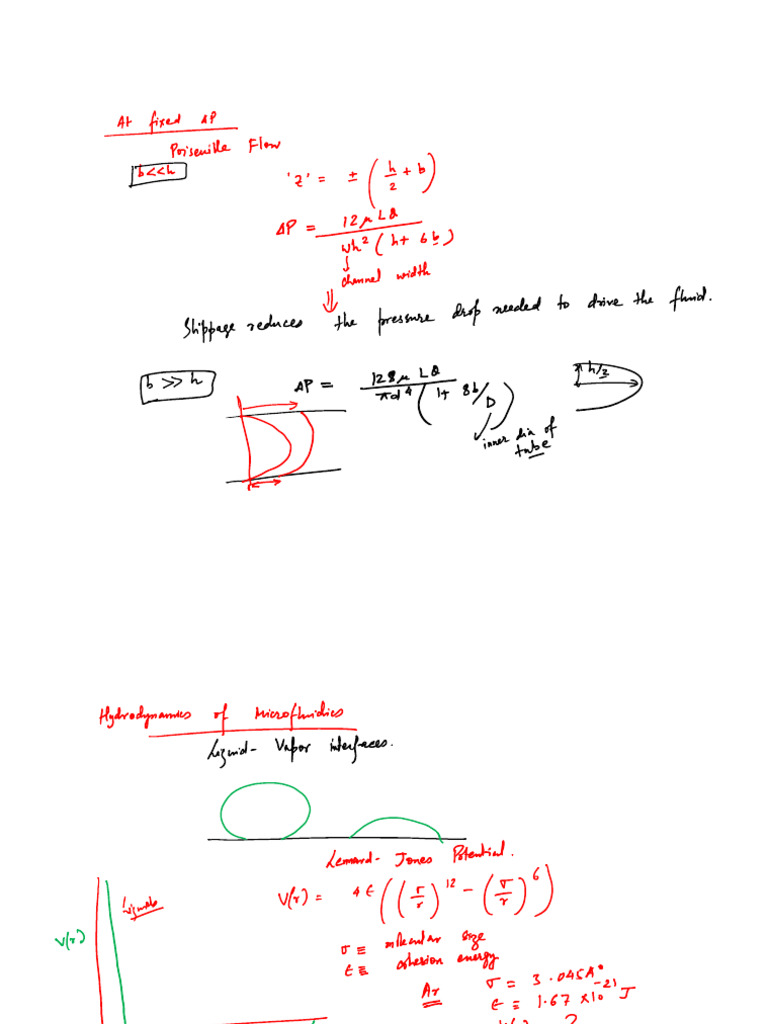 At fixed ΔP
Poiseuille Flow
b<<h
'z' = ± (h/2 + b)
ΔP = 12μLQ / wh²(h + 6b)
channel width
⇓
Slippage reduces the pressure drop needed to drive the fluid.
b >> h
ΔP = 128μLQ / πd⁴(1 + 8b/D)
h/2
inner dia of
tube
Hydrodynamics of Microfluidics
Liquid - Vapor interfaces.
Lennard - Jones Potential.
V(r) = 4ε((σ/r)¹² − (σ/r)⁶)
Liquids
V(r)
σ ≡ molecular size
ε ≡ cohesion energy
Ar
σ = 3.045A°
ε = 1.67 ×10⁻²¹ J